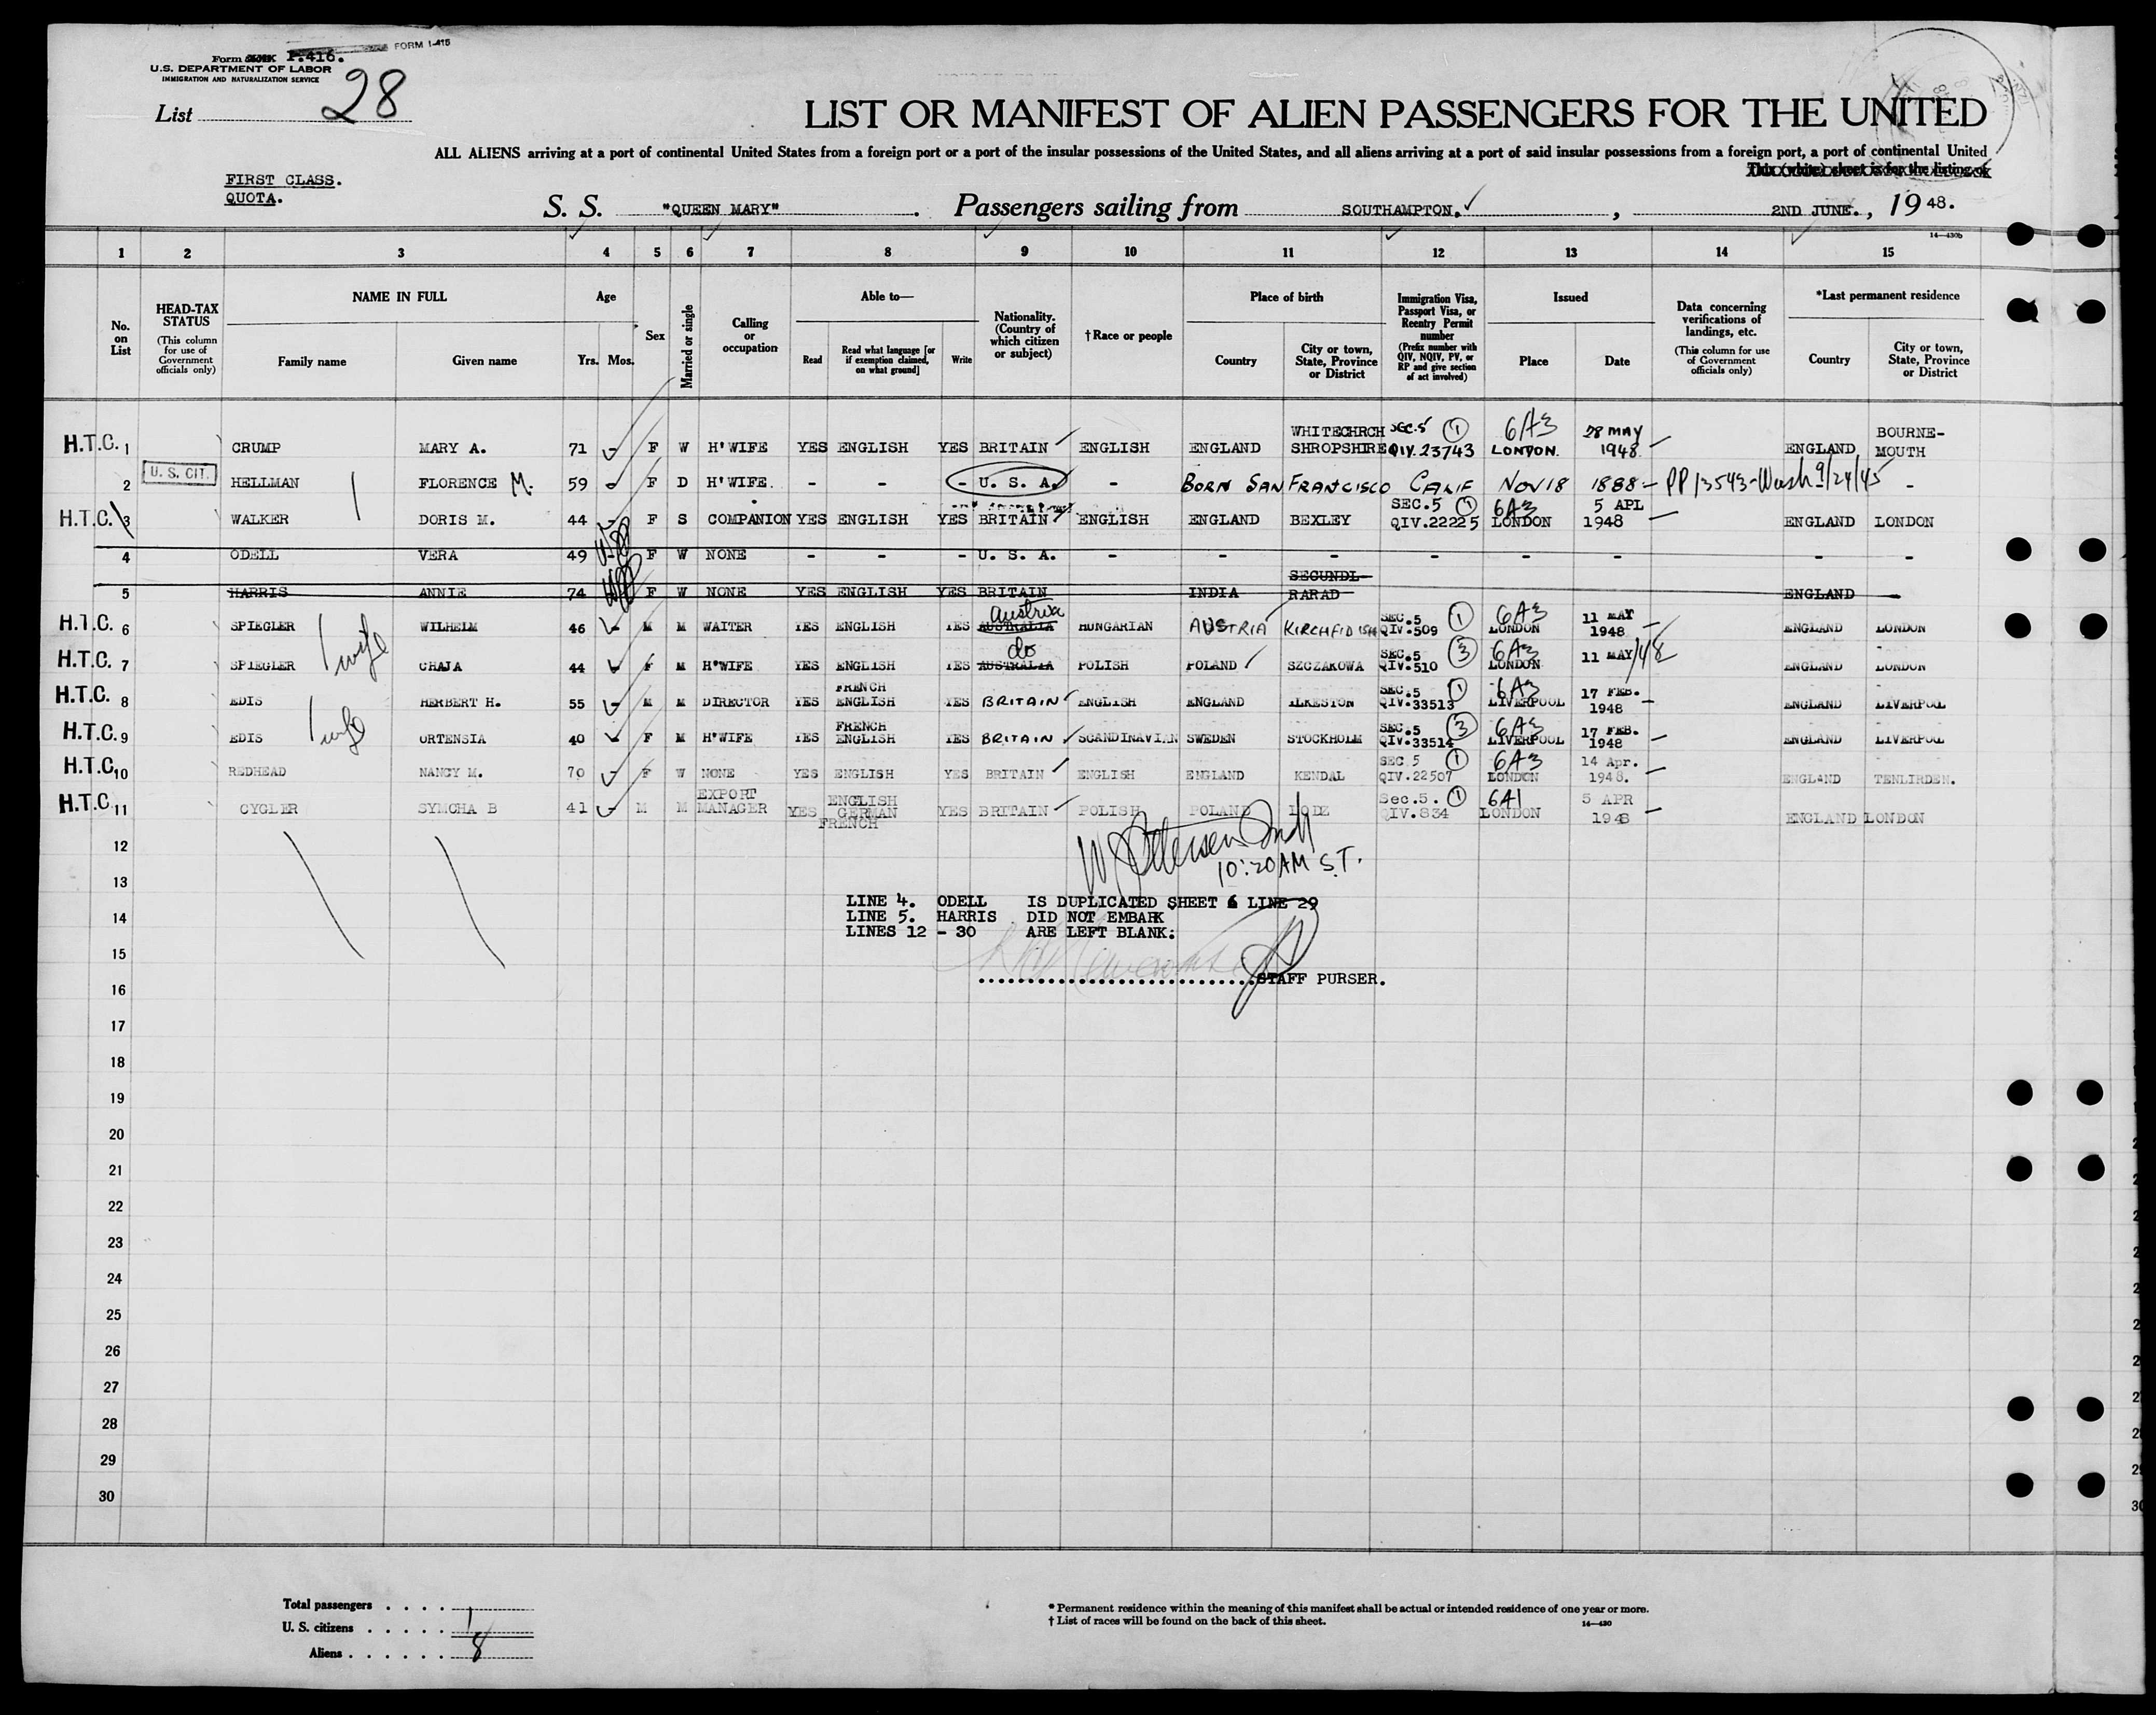 Form P.416. FORM I-415
U.S. DEPARTMENT OF LABOR
IMMIGRATION AND NATURALIZATION SERVICE
List 28
LIST OR MANIFEST OF ALIEN PASSENGERS FOR THE UNITED
ALL ALIENS arriving at a port of continental United States from a foreign port or a port of the insular possessions of the United States, and all aliens arriving at a port of said insular possessions from a foreign port, a port of continental United
This (white) sheet is for the listing of
FIRST CLASS.
QUOTA.
S. S. "QUEEN MARY" . Passengers sailing from SOUTHAMPTON. , 2ND JUNE. , 19 48.
14—430b
1 2 3 4 5 6 7 8 9 10 11 12 13 14 15
No. on List
HEAD-TAX STATUS (This column for use of Government officials only)
NAME IN FULL
Family name Given name
Age
Yrs. Mos.
Sex
Married or single
Calling or occupation
Able to—
Read Read what language [or if exemption claimed, on what ground] Write
Nationality. (Country of which citizen or subject)
†Race or people
Place of birth
Country City or town, State, Province or District
Immigration Visa, Passport Visa, or Reentry Permit number (Prefix number with QIV, NQIV, PV, or RP and give section of act involved)
Issued
Place Date
Data concerning verifications of landings, etc. (This column for use of Government officials only)
*Last permanent residence
Country City or town, State, Province or District
WHITECHRCH SEC.5 1 6A3 28 MAY BOURNE-
H.T.C. 1 CRUMP MARY A. 71 - F W H'WIFE YES ENGLISH YES BRITAIN ENGLISH ENGLAND SHROPSHIRE QIV.23743 LONDON. 1948 ENGLAND MOUTH
U. S. CIT.
2 HELLMAN FLORENCE M. 59 - F D H'WIFE. - - - U. S. A. - BORN SAN FRANCISCO CALIF NOV 18 1888 - PP 13543-Wash 9/24/45 -
SEC.5 1 6A3 5 APL
H.T.C. 3 WALKER DORIS M. 44 - F S COMPANION YES ENGLISH YES BRITAIN ENGLISH ENGLAND BEXLEY QIV.22225 LONDON 1948 ENGLAND LONDON
4 ODELL VERA 49 - F W NONE - - - U. S. A. - - - - - - - -
SECUNDL-
5 HARRIS ANNIE 74 F W NONE YES ENGLISH YES BRITAIN INDIA RARAD ENGLAND -
Austria SEC.5 1 6A3 11 MAY
H.T.C. 6 SPIEGLER WILHELM 46 - M M WAITER YES ENGLISH YES AUSTRALIA HUNGARIAN AUSTRIA KIRCHFIDISH QIV.509 LONDON 1948 ENGLAND LONDON
wife do SEC.5 3 6A3
H.T.C. 7 SPIEGLER CHAJA 44 - F M H'WIFE YES ENGLISH YES AUSTRALIA POLISH POLAND SZCZAKOWA QIV.510 LONDON 11 MAY/48 ENGLAND LONDON
FRENCH SEC.5 1 6A3 17 FEB.
H.T.C. 8 EDIS HERBERT H. 55 - M M DIRECTOR YES ENGLISH YES BRITAIN ENGLISH ENGLAND ILKESTON QIV.33513 LIVERPOOL 1948 ENGLAND LIVERPOL
wife FRENCH SEC.5 3 6A3 17 FEB.
H.T.C. 9 EDIS ORTENSIA 40 - F M H'WIFE YES ENGLISH YES BRITAIN SCANDINAVIAN SWEDEN STOCKHOLM QIV.33514 LIVERPOOL 1948 ENGLAND LIVERPOL
SEC.5 1 6A3 14 Apr.
H.T.C. 10 REDHEAD NANCY M. 70 - F W NONE YES ENGLISH YES BRITAIN ENGLISH ENGLAND KENDAL QIV.22507 LONDON 1948. ENGLAND TENLIRDEN.
EXPORT ENGLISH Sec.5. 1 6A1 5 APR
H.T.C. 11 CYGLER SYMCHA B 41 - M M MANAGER YES GERMAN YES BRITAIN POLISH POLAND LODZ QIV.834 LONDON 1948 ENGLAND LONDON
FRENCH
12
10:20 AM S.T.
13
LINE 4. ODELL IS DUPLICATED SHEET 6 LINE 29
14 LINE 5. HARRIS DID NOT EMBARK
LINES 12 - 30 ARE LEFT BLANK:
15
STAFF PURSER.
16
17
18
19
20
21
22
23
24
25
26
27
28
29
30
Total passengers
U. S. citizens 1
Aliens 8
* Permanent residence within the meaning of this manifest shall be actual or intended residence of one year or more.
† List of races will be found on the back of this sheet.
14—430